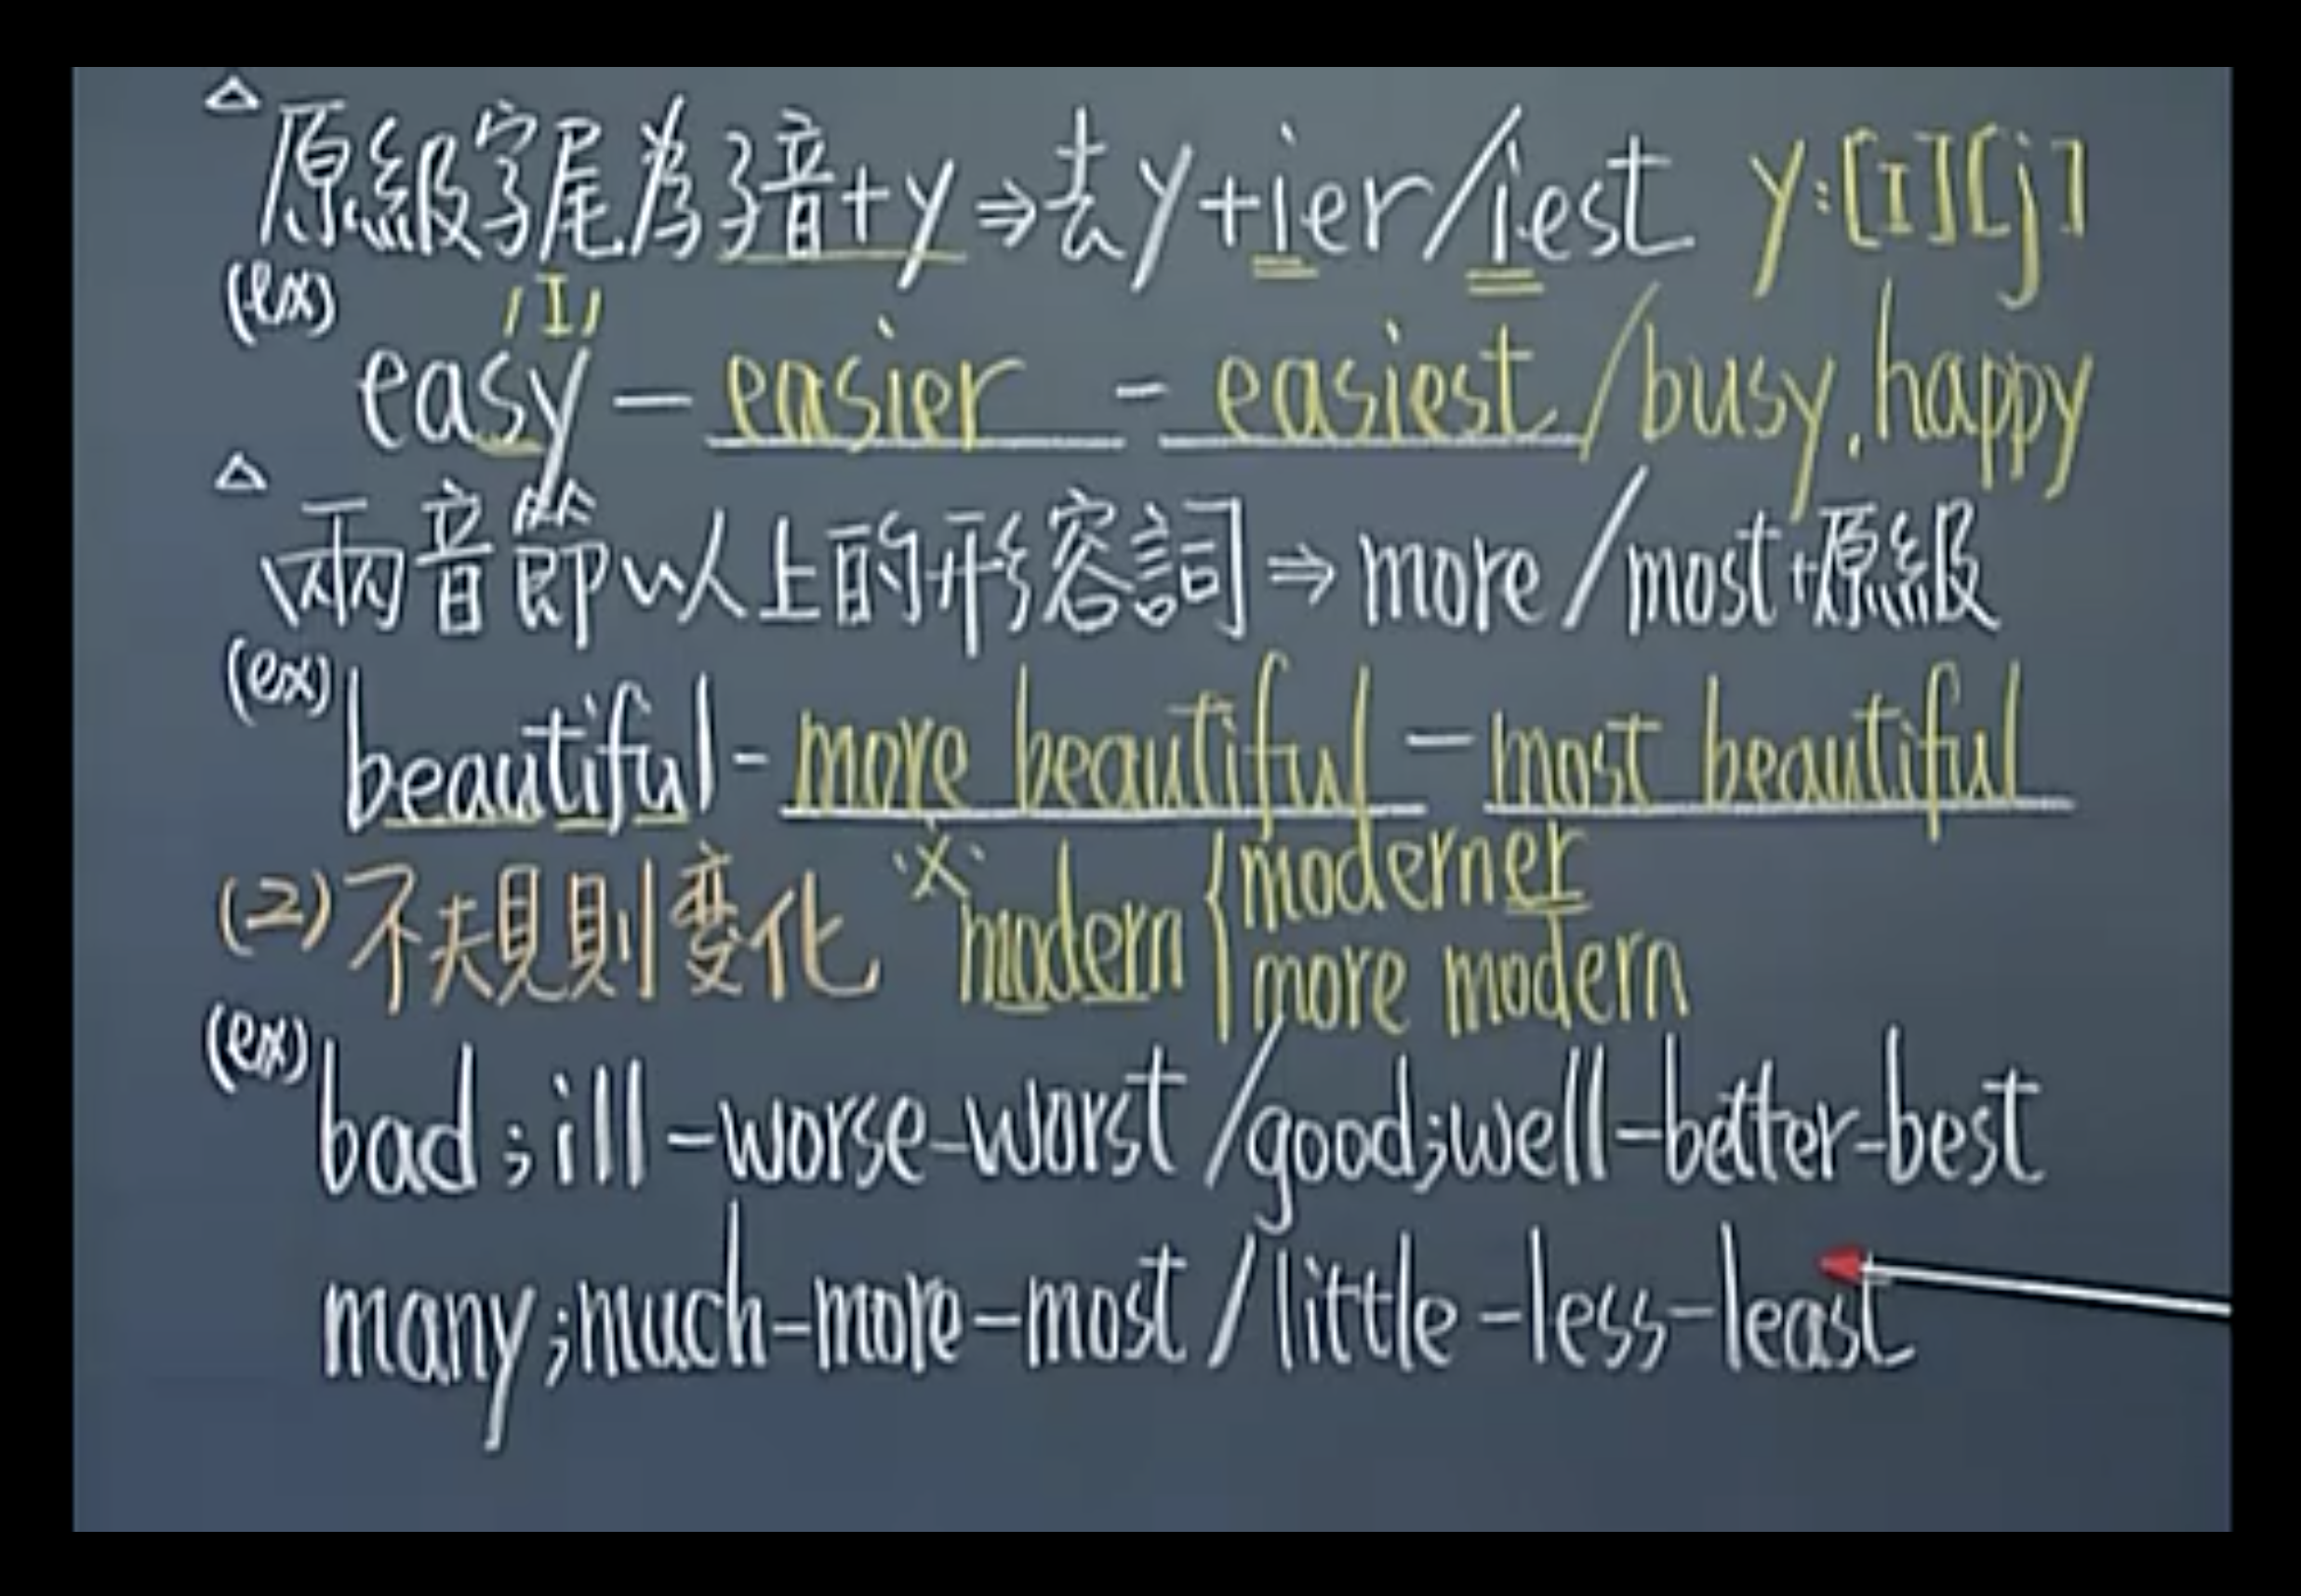 △原級字尾為子音+y⇒去y+ier/iest y:[I][j]
(ex) /I/
easy — easier - easiest/busy.happy
△兩音節以上的形容詞⇒more/most+原級
(ex) beautiful - more beautiful — most beautiful
(2) 不規則変化 ※modern { moderner
more modern
(ex) bad;ill-worse-worst/good;well-better-best
many;much-more-most/little-less-least